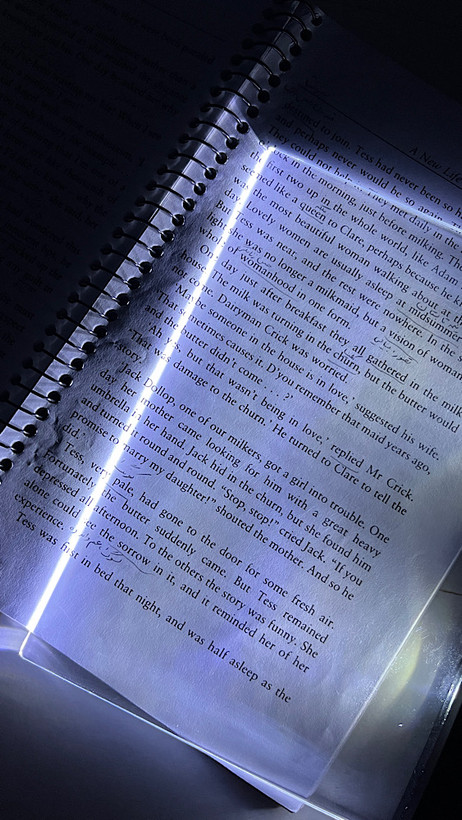 A New Life
to join. Tess had never been so h
and perhaps never would be so again
They could not help met daily
in the morning, just before milking. T
first two up in the whole world, like Adam
like a queen to Clare, perhaps because he k
the most beautiful woman walking about at
lovely women are usually asleep at midsummer
was near, and the rest were nowhere. In the s
she was no longer a milkmaid, but a vision of woman
womanhood in one form.
One day just after breakfast they all gathered in the milk
house. The milk was turning in the churn, but the butter would
no come. Dairyman Crick was worried.
'Maybe someone in the house is in love,' suggested his wife.
'That sometimes causes it. D'you remember that maid years ago,
and the butter didn't come . . .?'
'Ah yes, but that wasn't being in love,' replied Mr Crick.
'That was damage to the churn.' He turned to Clare to tell the
story.
'Jack Dollop, one of our milkers, got a girl into trouble. One
day her mother came looking for him with a great heavy
umbrella in her hand. Jack hid in the churn, but she found him
and turned it round and round. "Stop, stop!" cried Jack. "If you
promise to marry my daughter!" shouted the mother. And so he
did.'
Tess, very pale, had gone to the door for some fresh air.
Fortunately the butter suddenly came. But Tess remained
depressed all afternoon. To the others the story was funny. She
alone could see the sorrow in it, and it reminded her of her
experience.
Tess was first in bed that night, and was half asleep as the